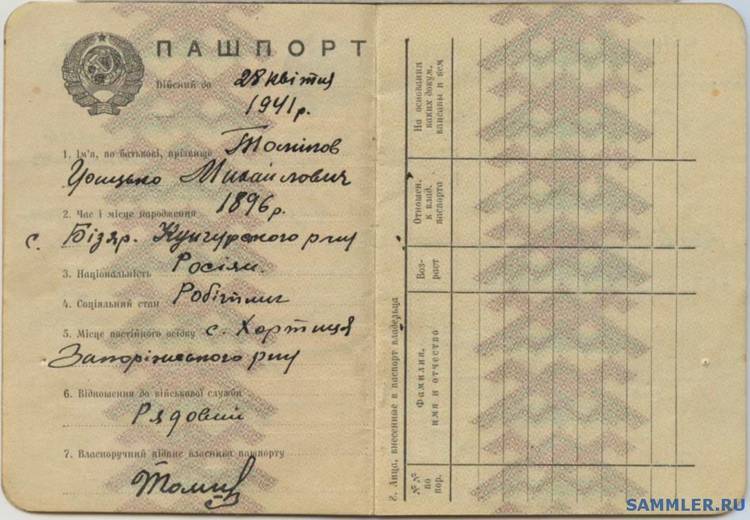 ПАШПОРТ
Дійсний до 28 квітня
1941 р.
1. Ім'я, по батькові, прізвище
Михайлович
2. Час і місце народження 1896 р.
с. Бізяр. Кунгурского р-ну
3. Національність Росіян.
4. Соціяльний стан Робітник
5. Місце постійного осідку с. Хортиця
Запоріжського р-ну
6. Відношення до військової служби
Рядовий
7. Власноручний підпис власника пашпорту
8. Лица, внесенные в паспорт владельца
№№
по
пор.
Фамилия,
имя и отчество
Воз-
раст
Отношен.
к влад.
паспорта
На основании
каких докум.
вписаны и кем
SAMMLER.RU